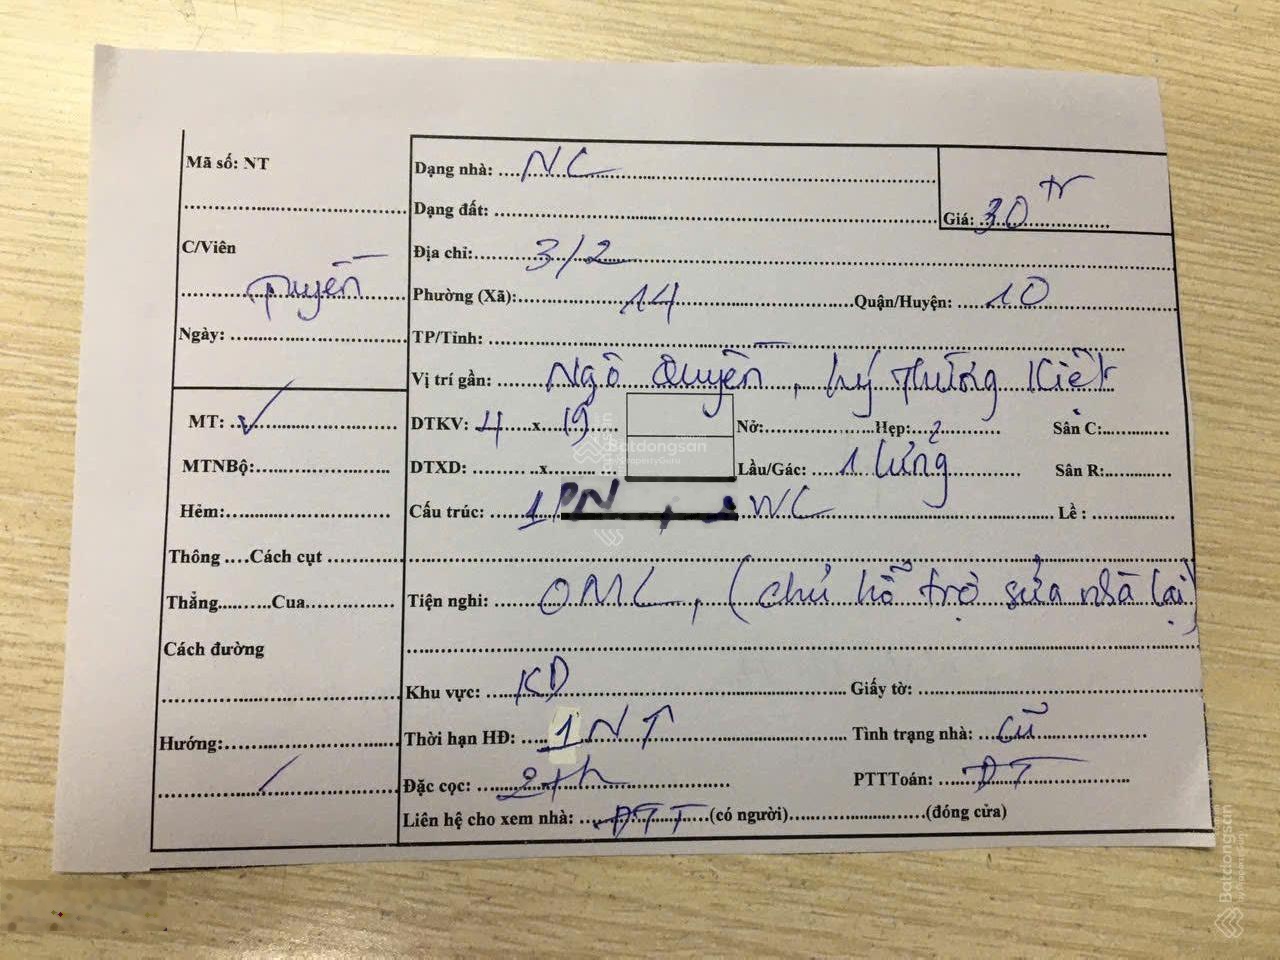 Mã số: NT
Dạng nhà: NC
Giá: 30 tr
Dạng đất:
C/Viên
Địa chỉ: 3/2
Phường (Xã): 14 Quận/Huyện: 10
Ngày:
TP/Tỉnh:
Vị trí gần: Ngô Quyền, Lý Thường Kiệt
MT: ✓
DTKV: 4 x 19 Nở: Hẹp: 2 Sân C:
MTNBộ:
DTXD: x Lầu/Gác: 1 lửng Sân R:
Hẻm:
Cấu trúc: 1PN WC Lề :
Thông ....Cách cụt
Thẳng........Cua
Tiện nghi: OML, (chủ hỗ trợ sửa nhà lại)
Cách đường
Khu vực: KD Giấy tờ:
Hướng:
Thời hạn HĐ: 1 NT Tình trạng nhà: cũ
Đặc cọc: 2th PTTToán: DT
Liên hệ cho xem nhà: DTT (có người) (đóng cửa)
Batdongsan
by PropertyGuru
Batdongsan
by PropertyGuru